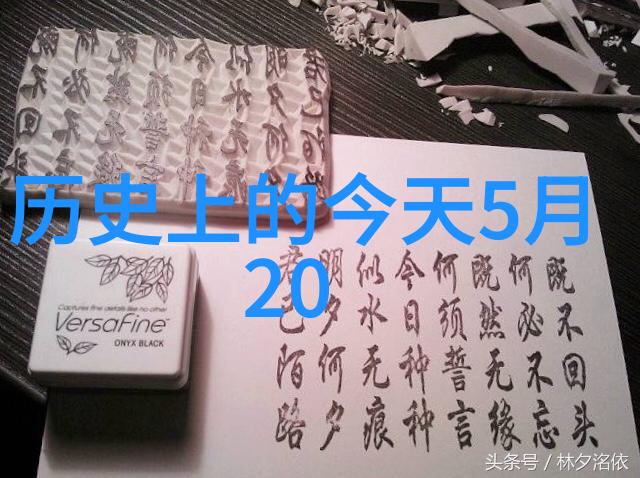 历史上的今天5月
20
Captures fine details like no other
VersaFine
ONYX BLACK
既不回头
何必不忘
既然无缘
何须誓言
今日种种
似水无痕
明夕何夕
君已陌路
头条号 / 林夕洺依